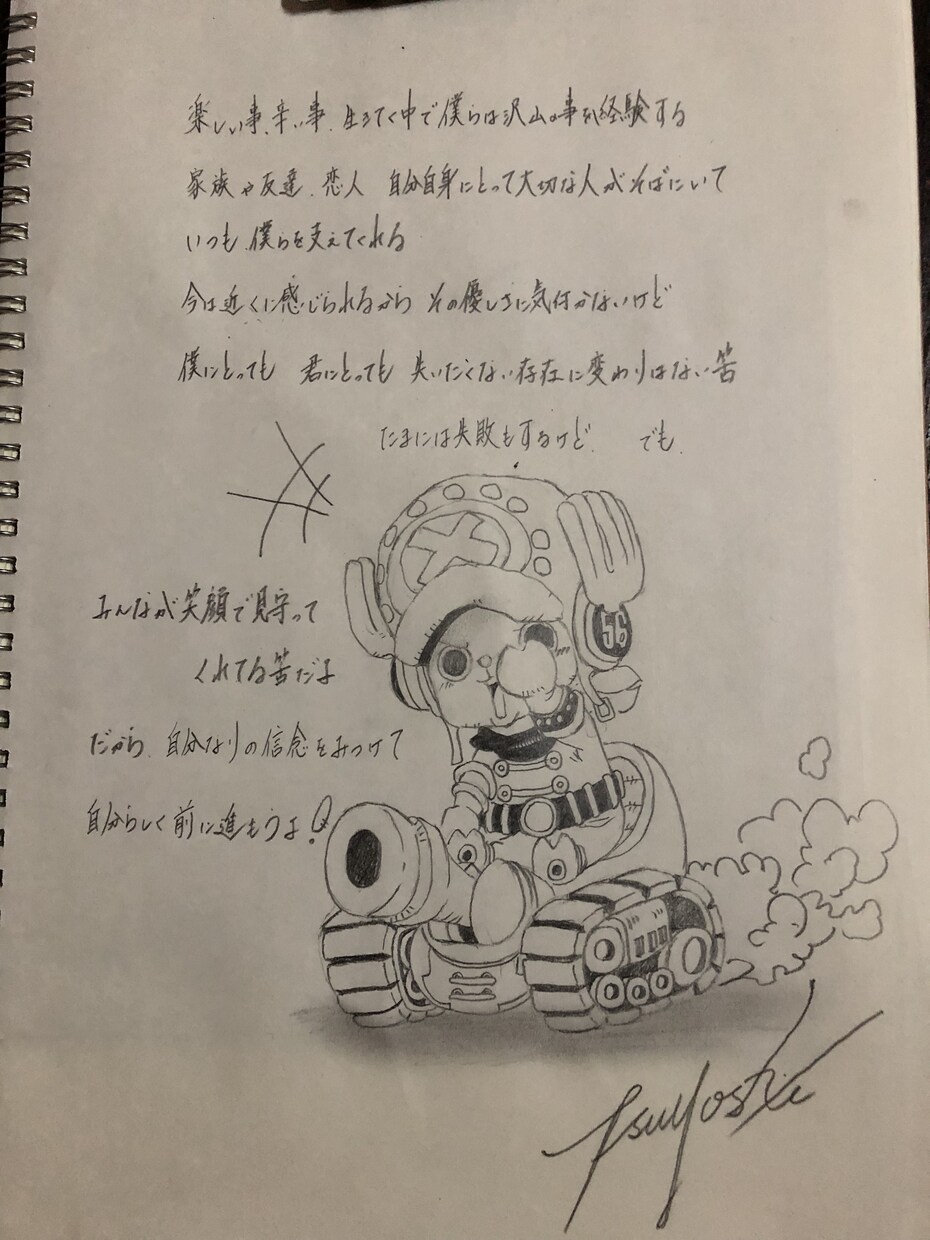 楽しい事、辛い事、生きてく中で僕らは沢山の事を経験する
家族や友達、恋人 自分自身にとって大切な人がそばにいて
いつも、僕らを支えてくれる
今は近くに感じられるから その優しさに気付かないけど
僕にとっても 君にとっても 失いたくない存在に変わりはない筈
たまには失敗もするけど、 でも、
みんなが笑顔で見守って
くれてる筈だよ
だから、自分なりの信念をみつけて
自分らしく前に進もうよ!
56
Tsuyoshi